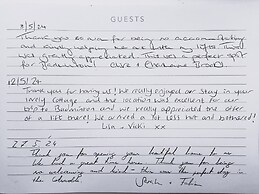 GUESTS
8/5/24
Thank you so much for being so accommodating
and simply helping me out with my lifts. This
was greatly appreciated. This was a perfect spot
for Badminton! Clare +
12/5/24
Thank you for having us! We really enjoyed our stay in your
lovely cottage and the location was excellent for our
trip to Badminton and we really appreciated the offer
of a lift there! We arrived a bit less hot and bothered!
Lisa + Vicki xx
27.5.24
Thank you for opening your beautiful home to us
We had a great time here. Thank you for being
so welcoming and kind - there was the perfect stay in
the Cotswolds